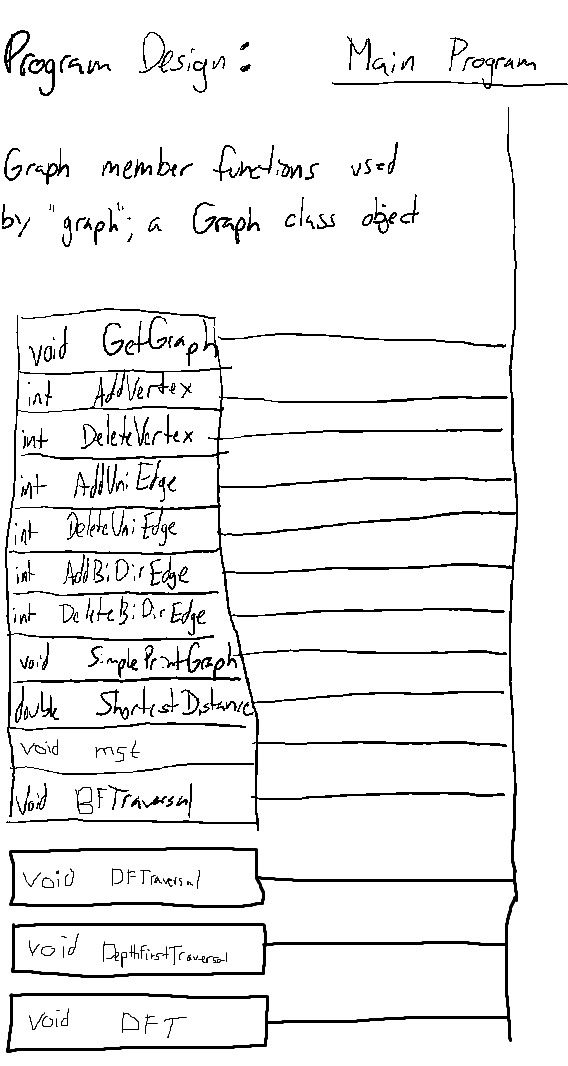 Program Design: Main Program
Graph member functions used
by "graph"; a Graph class object
void GetGraph
int AddVertex
int DeleteVertex
int AddUniEdge
int DeleteUniEdge
int AddBiDirEdge
int DeleteBiDirEdge
void SimplePrintGraph
double ShortestDistance
void mst
void BFTraversal
void DFTraversal
void DepthFirstTraversal
void DFT